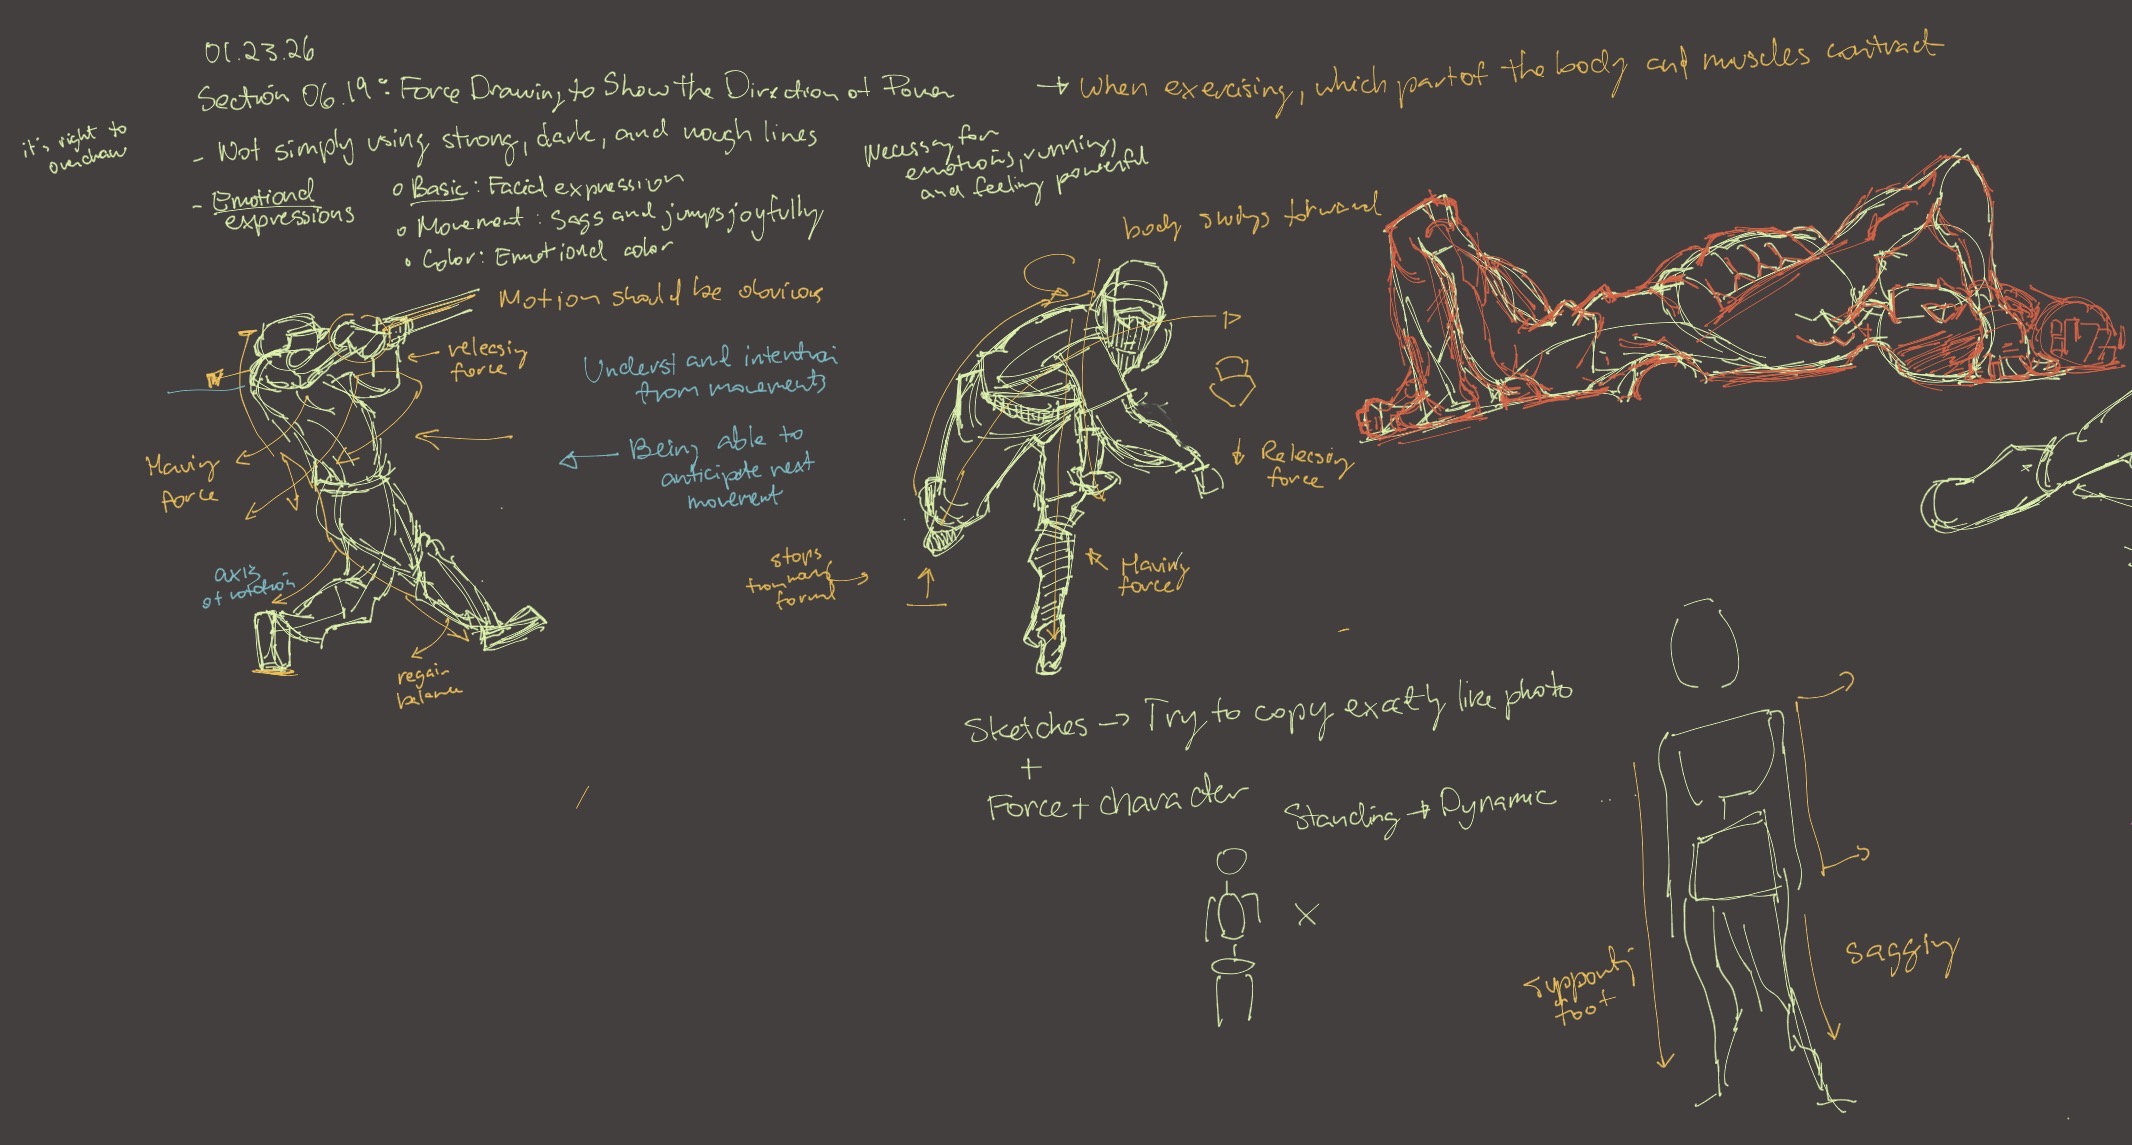 01.23.26
Section 06.19: Force Drawing to Show the Direction of Power
→ When exercising, which part of the body and muscles contract
it's right to
overdraw
- Not simply using strong, dark, and rough lines
- Emotional
expressions
o Basic: Facial expression
o Movement: Sags and jumps joyfully
o Color: Emotional color
Necessary for
emotions, running,
and feeling powerful
body swings forward
Motion should be obvious
releasing
force
Understand intention
from movements
← Being able to
anticipate next
movement
Having
force
axis
of rotation
regain
balance
Releasing
force
stops
from
Having
force
Sketches → Try to copy exactly like photo
+
Force + character
Standing → Dynamic
X
supporting
foot
sagging